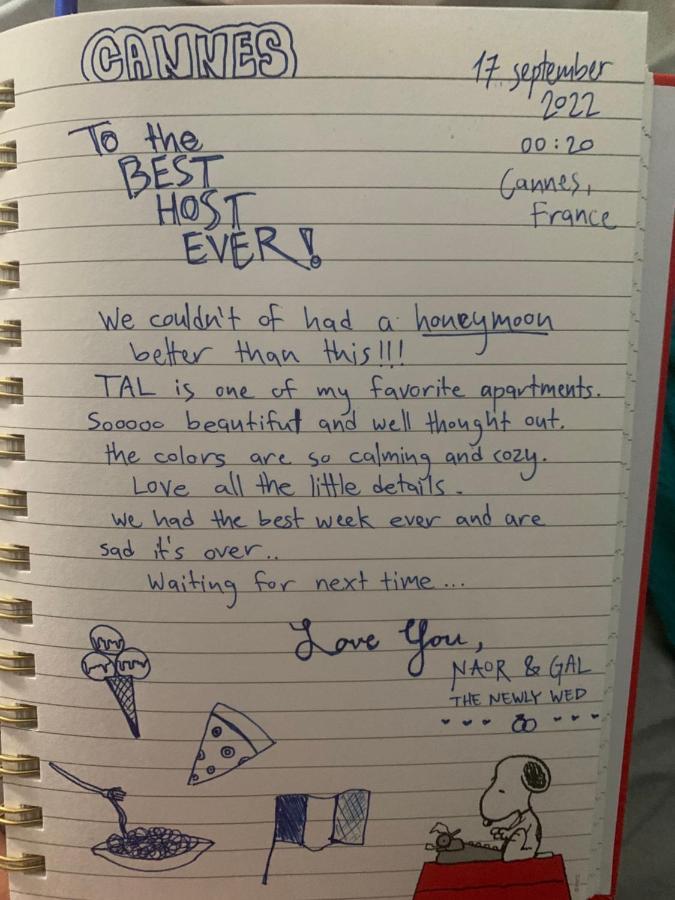 CANNES
17 september
2022
00:20
Cannes,
France
To the
BEST
HOST
EVER!
We couldn't of had a honeymoon
better than this!!!
TAL is one of my favorite apartments.
Sooooo beautiful and well thought out.
the colors are so calming and cozy.
Love all the little details.
we had the best week ever and are
sad it's over..
Waiting for next time...
Love You,
NAOR & GAL
THE NEWLY WED